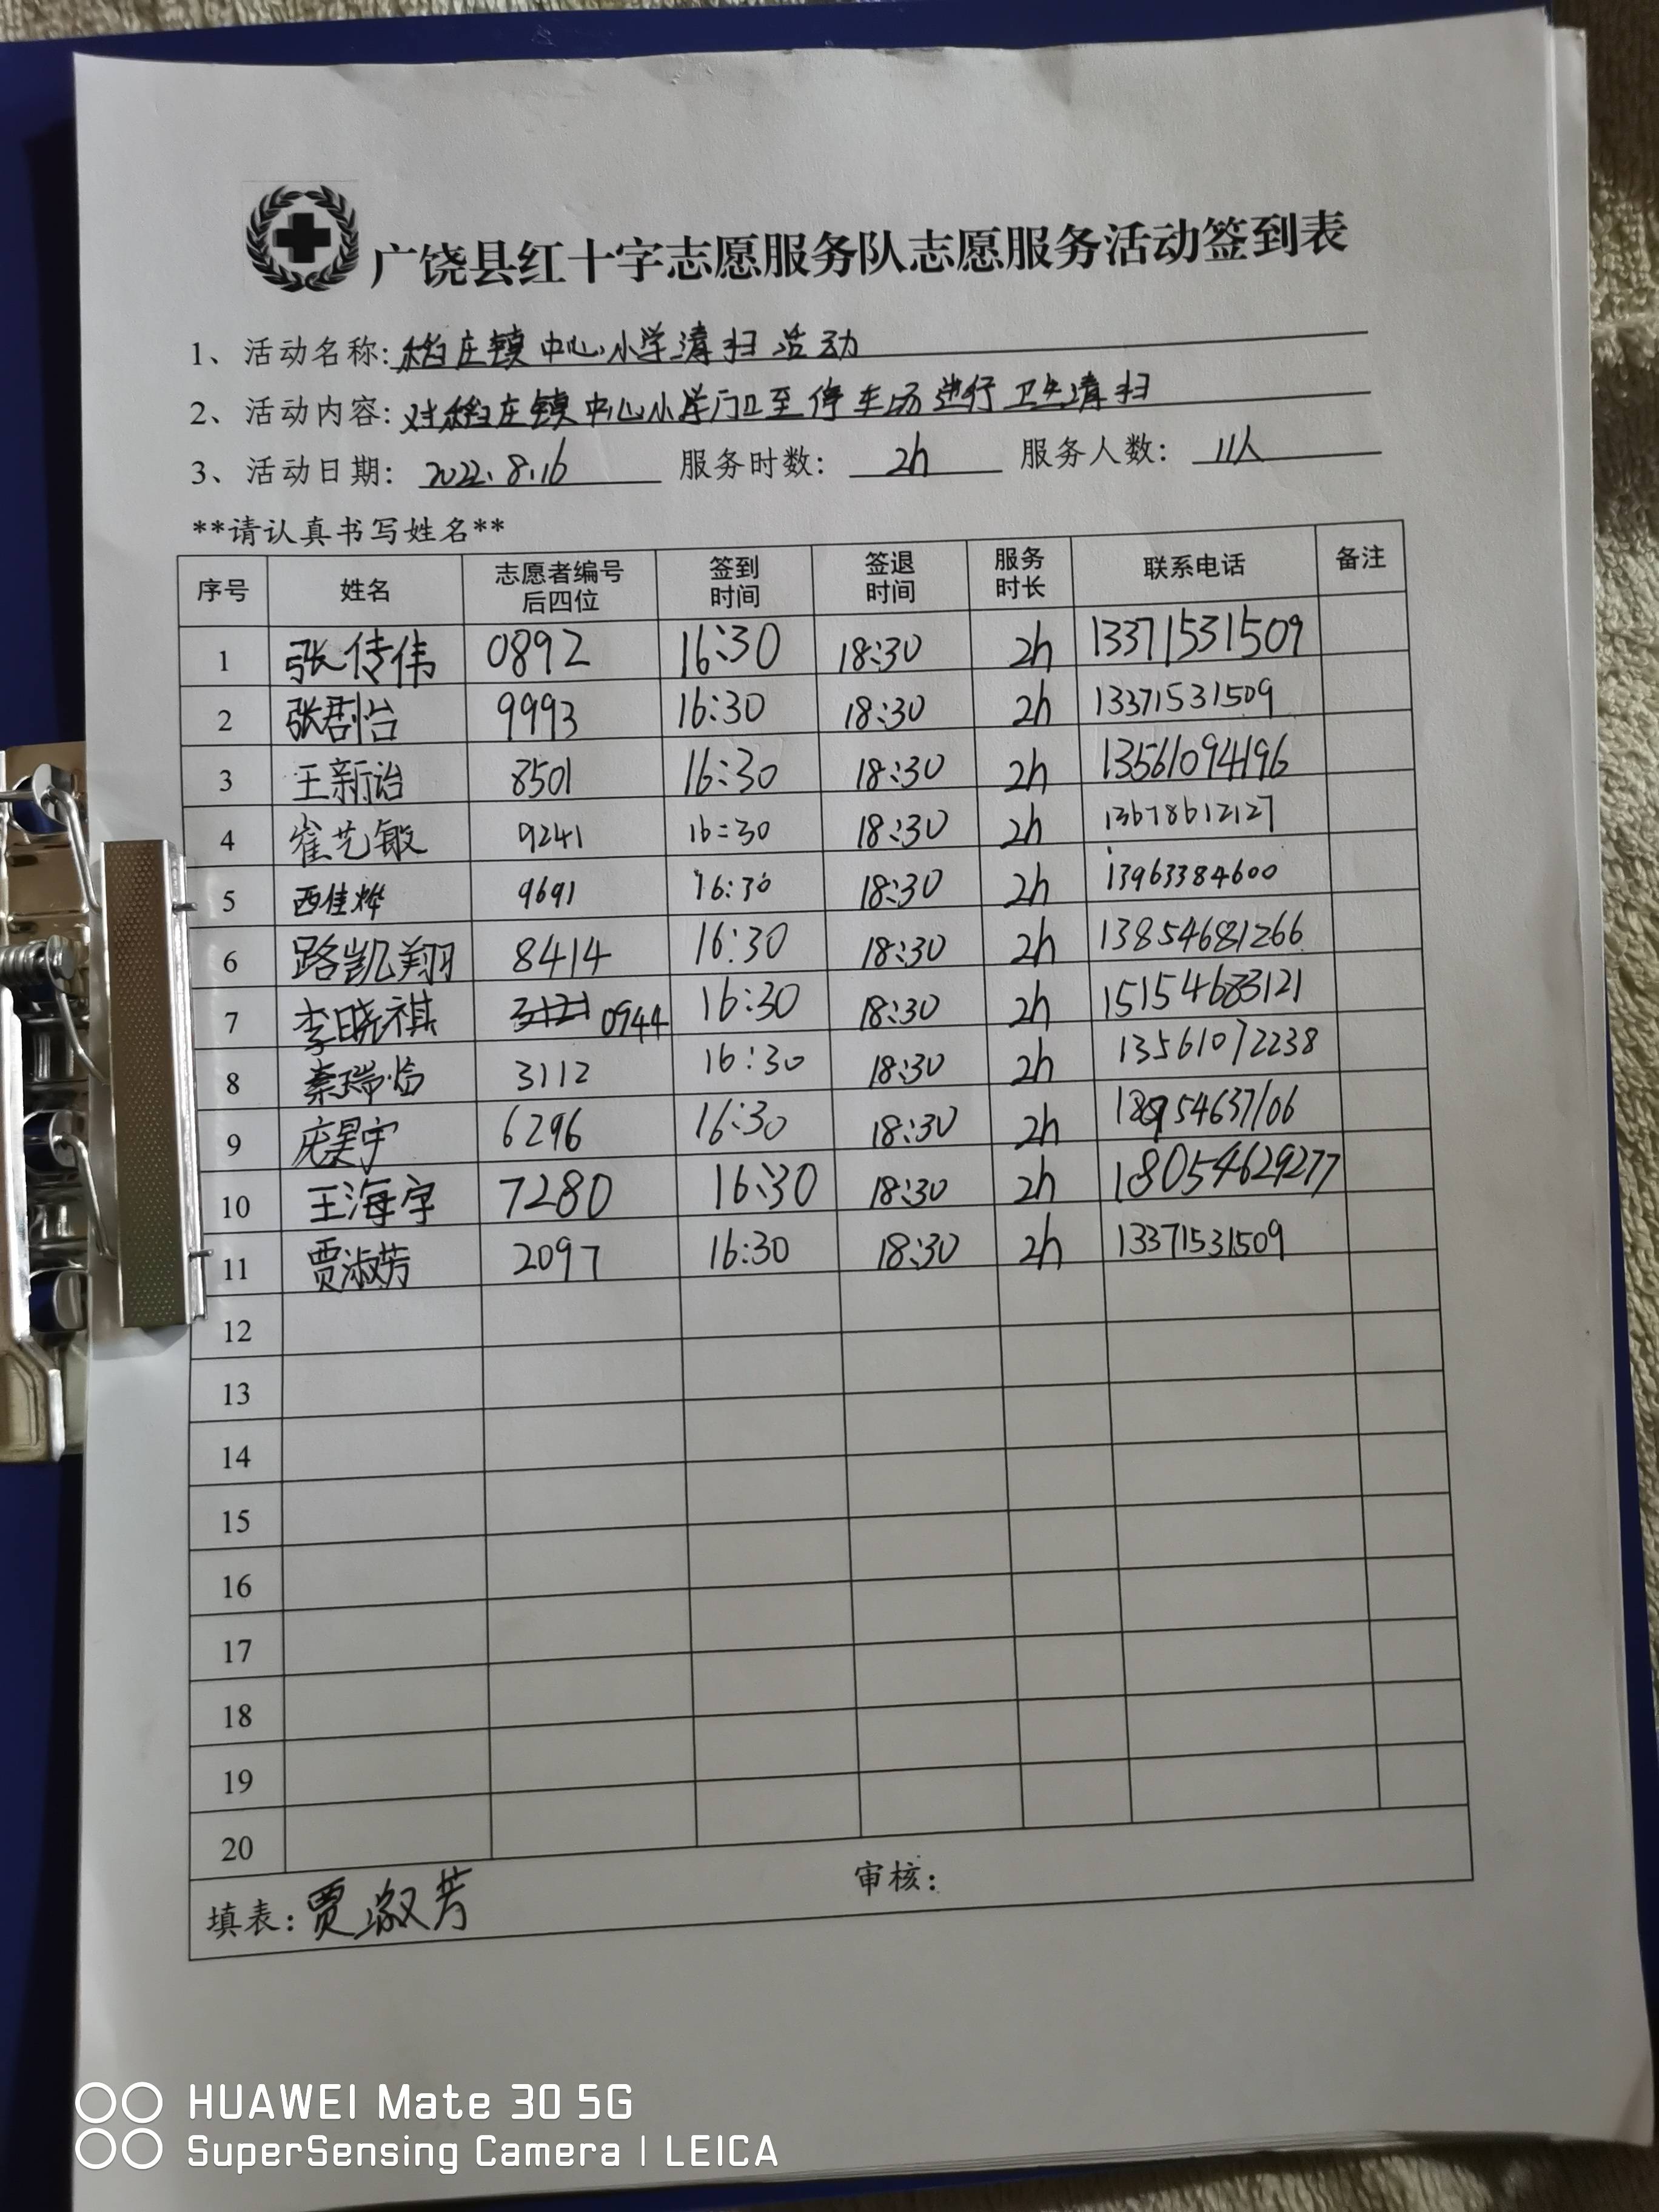 广饶县红十字志愿服务队志愿服务活动签到表
1、活动名称:稻庄镇中心小学清扫活动
2、活动内容:对稻庄镇中心小学门口至停车场进行卫生清扫
3、活动日期: 2022.8.16 服务时数: 2h 服务人数: 11人
**请认真书写姓名**
序号 姓名 志愿者编号后四位 签到时间 签退时间 服务时长 联系电话 备注
1 张传伟 0892 16:30 18:30 2h 13371531509
2 张君怡 9993 16:30 18:30 2h 13371531509
3 王新诒 8501 16:30 18:30 2h 13561094196
4 崔艺敏 9241 16:30 18:30 2h 13678612127
5 西佳烨 9691 16:30 18:30 2h 13963384600
6 路凯翔 8414 16:30 18:30 2h 13854681266
7 李晓祺 0944 16:30 18:30 2h 15154683121
8 秦瑞怡 3112 16:30 18:30 2h 13561072238
9 庞昊宇 6296 16:30 18:30 2h
10 王海宇 7280 16:30 18:30 2h 18054629277
11 贾淑芳 2097 16:30 18:30 2h 13371531509
12
13
14
15
16
17
18
19
20
填表:贾淑芳 审核:
HUAWEI Mate 30 5G
SuperSensing Camera | LEICA